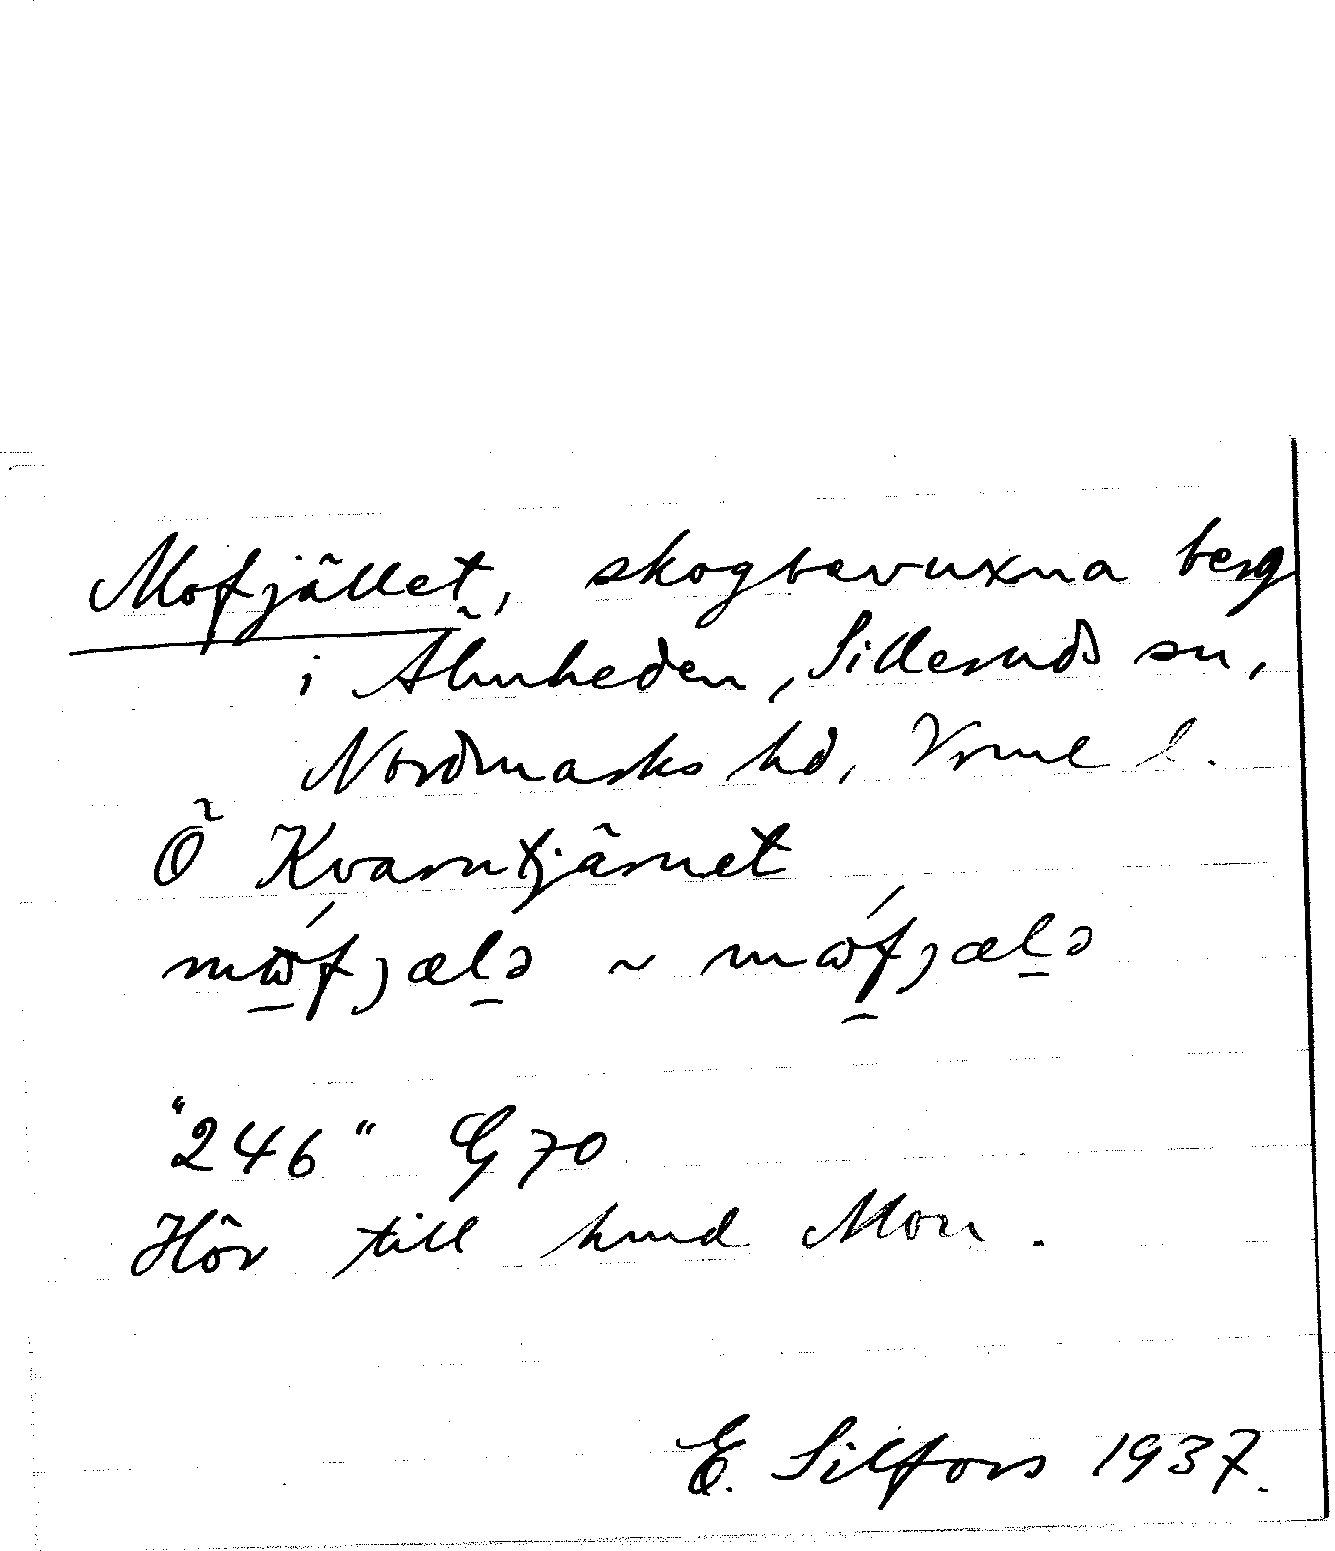 Mofjället, skogbevuxna berg
i Älmheden, Silleruds sn,
Nordmarks hd, Vrml l.
Ö Kvarntjärnet
mώ̱fjæl̠ə ~ mώf̠jæl̠ə
"246" G 70
Hör till hmd Mon.
E. Silfors 1937.